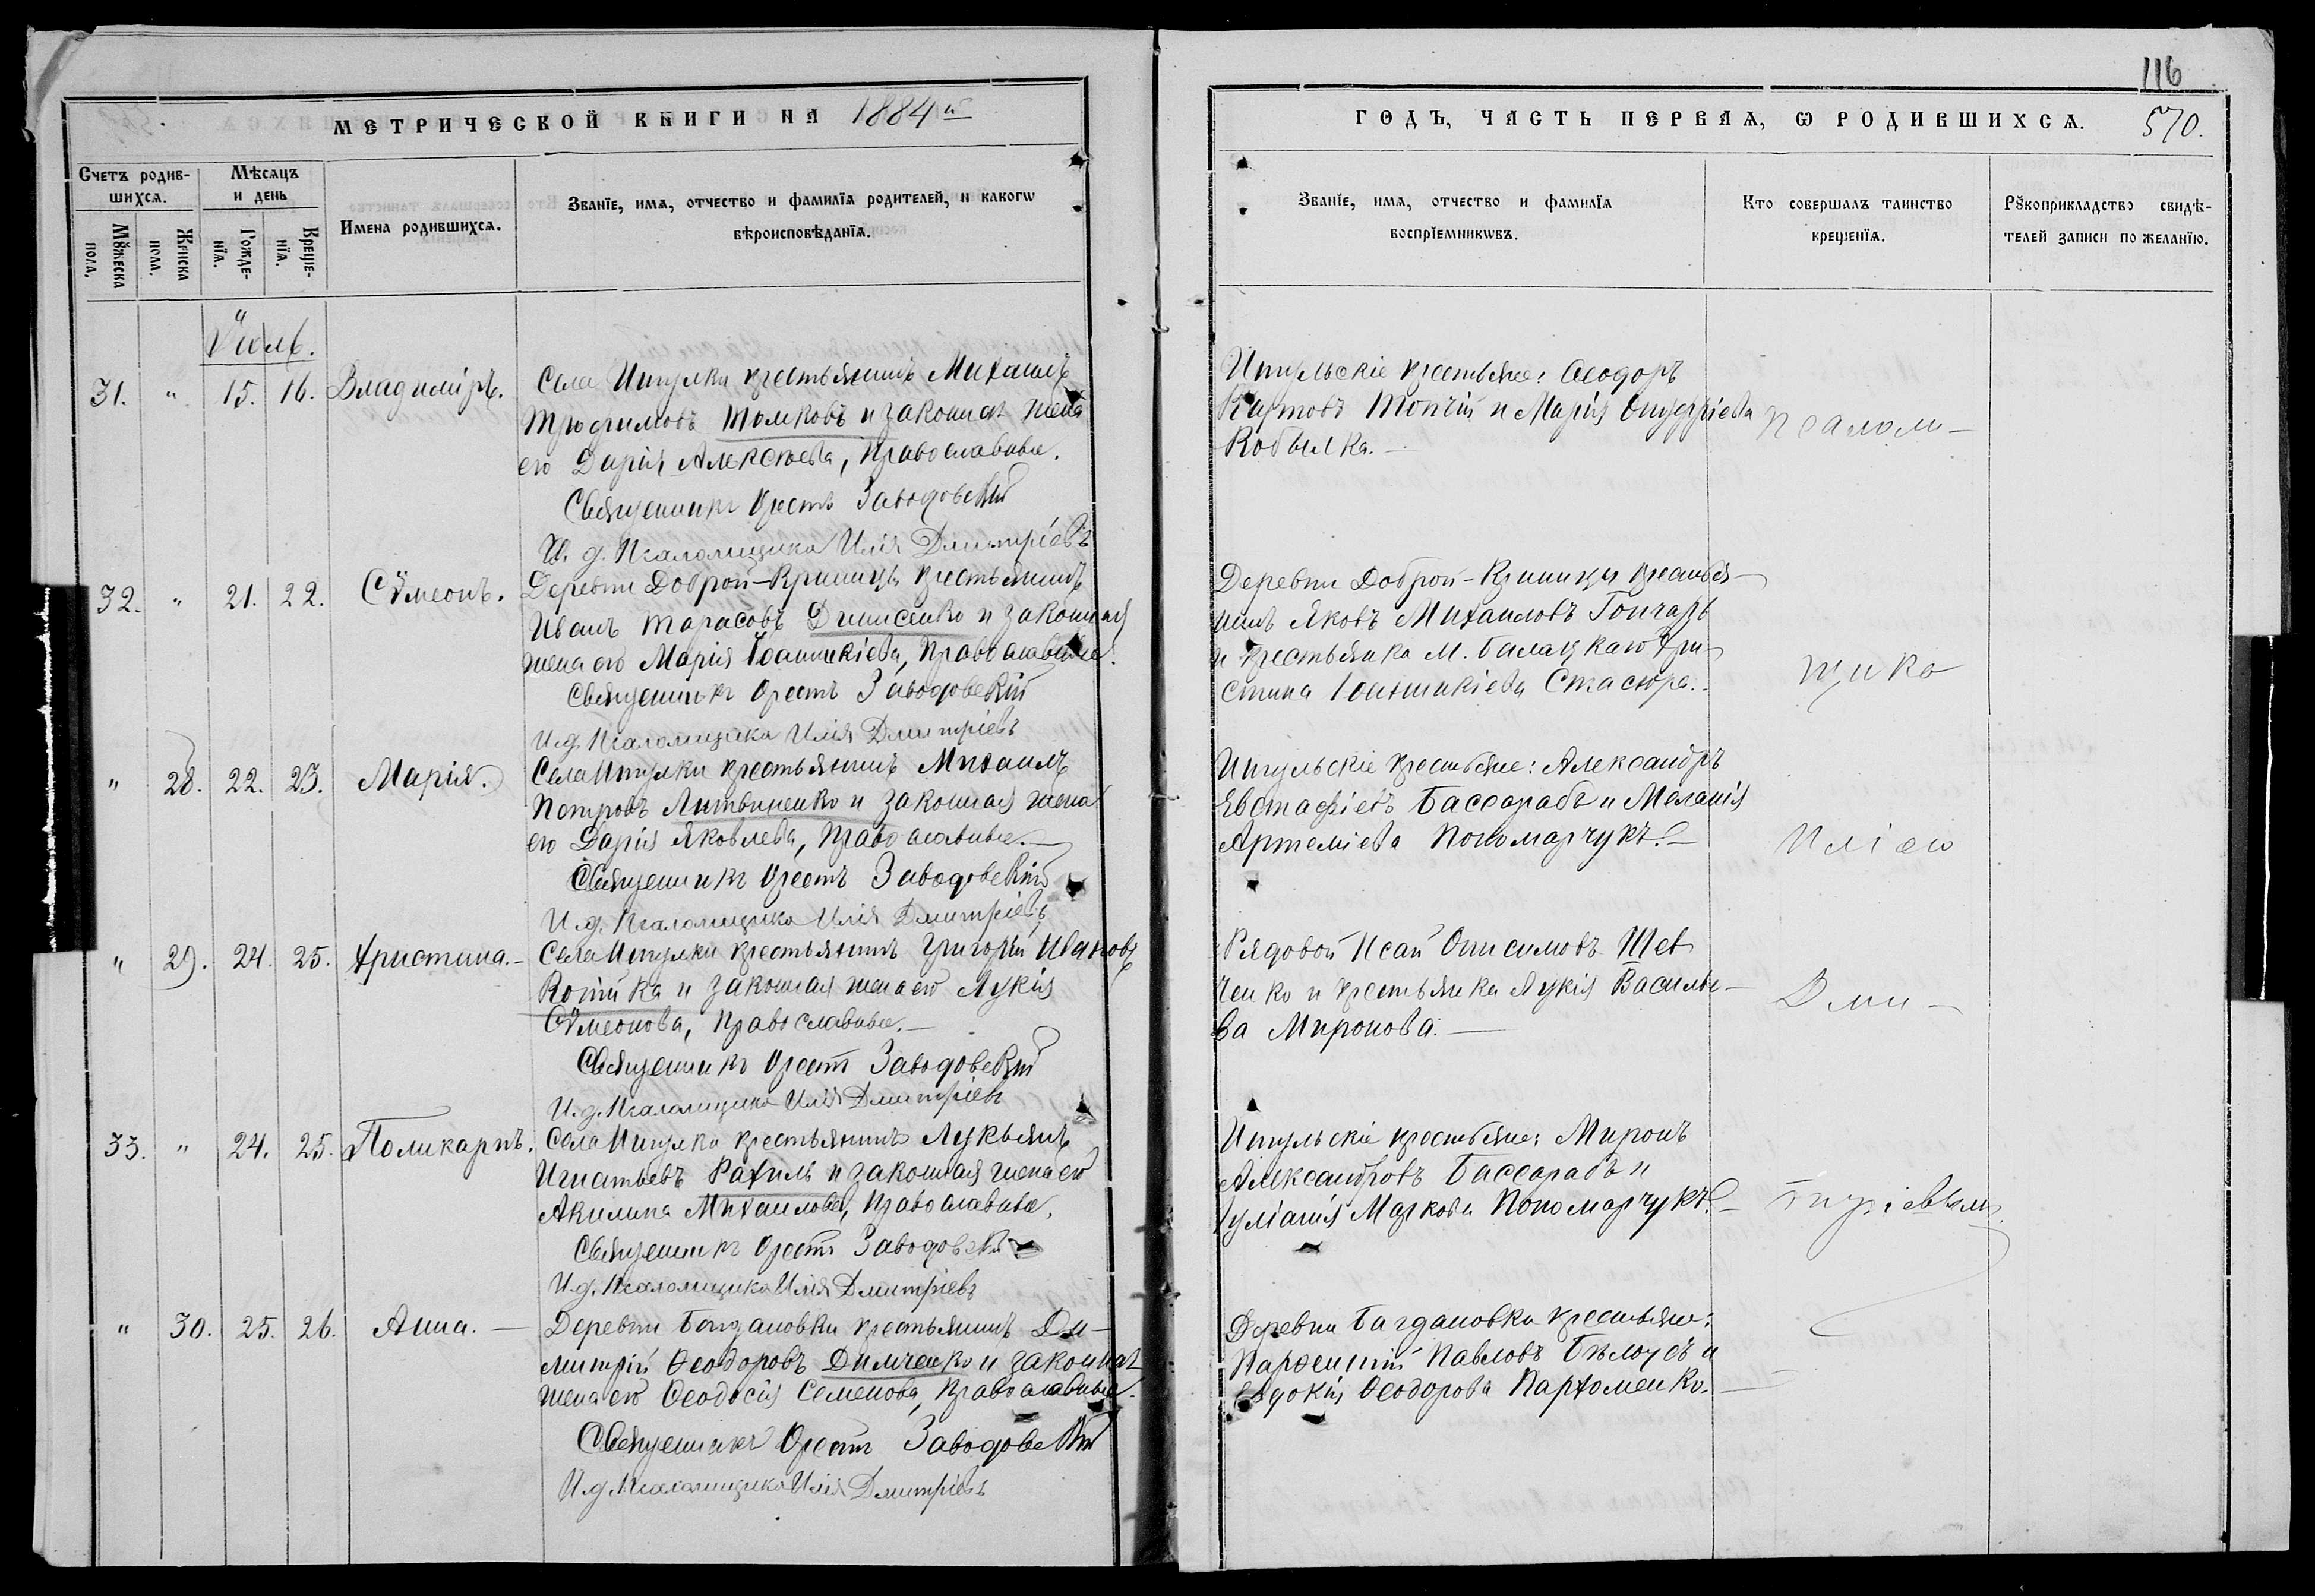 116
МЕТРИЧЕСКОЙ КНИГИ НА 1884й
ГОДЪ, ЧАСТЬ ПЕРВАѦ, Ѡ РОДИВШИХСѦ. 570.
Счетъ родив-
шихсѧ.
Мѣсѧцъ
и день
Мꙋжеска
пола.
Женска
пола.
Рожде-
нїѧ.
Креще-
нїѧ.
Имена родившихсѧ.
Званїе, имѧ, отчество и фамилїѧ родителей, и какогѡ
вѣроисповѣданїѧ.
Званїе, имѧ, отчество и фамилїѧ
воспрїемникѡвъ.
Кто совершалъ таинство
крещенїѧ.
Рꙋкоприкладство свидѣ-
телей записи по желанїю.
Июль.
31. " 15. 16. Владиміръ.
Села Ингулки крестьянинъ Михаилъ
Трофимовъ Толковъ и законная жена
его Дарія Алексѣева, православные.
Священникъ Орестъ Заводовскій
И. д. Псаломщика Илія Дмитріевъ
Ингульскіе крестьяне: Ѳеодоръ
Карповъ Топчій и Марія Онуфріева
Кобылка. —
псалом—
32. " 21. 22. Сѵмеонъ.
Деревни Доброй-Криницы крестьянинъ
Иванъ Тарасовъ Денисенко и законная
жена его Марія Іоанникіева, православные.
Священникъ Орестъ Заводовскій
И. д. Псаломщика Илія Дмитріевъ
Деревни Доброй-Криницы крестья—
нинъ Яковъ Михаиловъ Гончаръ
и крестьянка М. Балацкаго Хри-
стина Іоанникіева Стасюра. —
щико
" 28. 22. 23. Марія.
Села Ингулки крестьянинъ Михаилъ
Петровъ Литвиненко и законная жена
его Дарія Яковлева, православные. —
Священникъ Орестъ Заводовскій
И. д. Псаломщика Илія Дмитріевъ
Ингульскіе крестьяне: Александръ
Евстафіевъ Бассарабъ и Меланія
Артеміева Пономарчукъ. —
Иліею
" 29. 24. 25. Христина. —
Села Ингулки крестьянинъ Григорій Ивановъ
Котійка и законная жена его Лукія
Сѵмеонова, православные. —
Священникъ Орестъ Заводовскій
И. д. Псаломщика Илія Дмитріевъ
Рядовой Исай Онисимовъ Шев
ченко и крестьянка Лукія Василье—
ва Миронова. —
Дми—
33. " 24. 25. Поликарпъ.
Села Ингулки крестьянинъ Лукьянъ
Игнатьевъ Рахиль и законная жена его
Акилина Михаилова, православные.
Священникъ Орестъ Заводовскій
И. д. Псаломщика Илія Дмитріевъ
Ингульскіе крестьяне: Миронъ
Александровъ Бассарабъ и
Іуліанія Маркова Пономарчукъ. —
тріевым.
" 30. 25. 26. Анна. —
Деревни Богдановки крестьянинъ Ди—
митрій Ѳеодоровъ Димченко и законная
жена его Ѳеодосія Семенова, православные.
Священникъ Орестъ Заводовскій
И. д. Псаломщика Илія Дмитріевъ
Деревни Багдановки крестьяне:
Парѳеній Павловъ Бѣлоусъ и
Евдокія Ѳеодорова Пархоменко. —